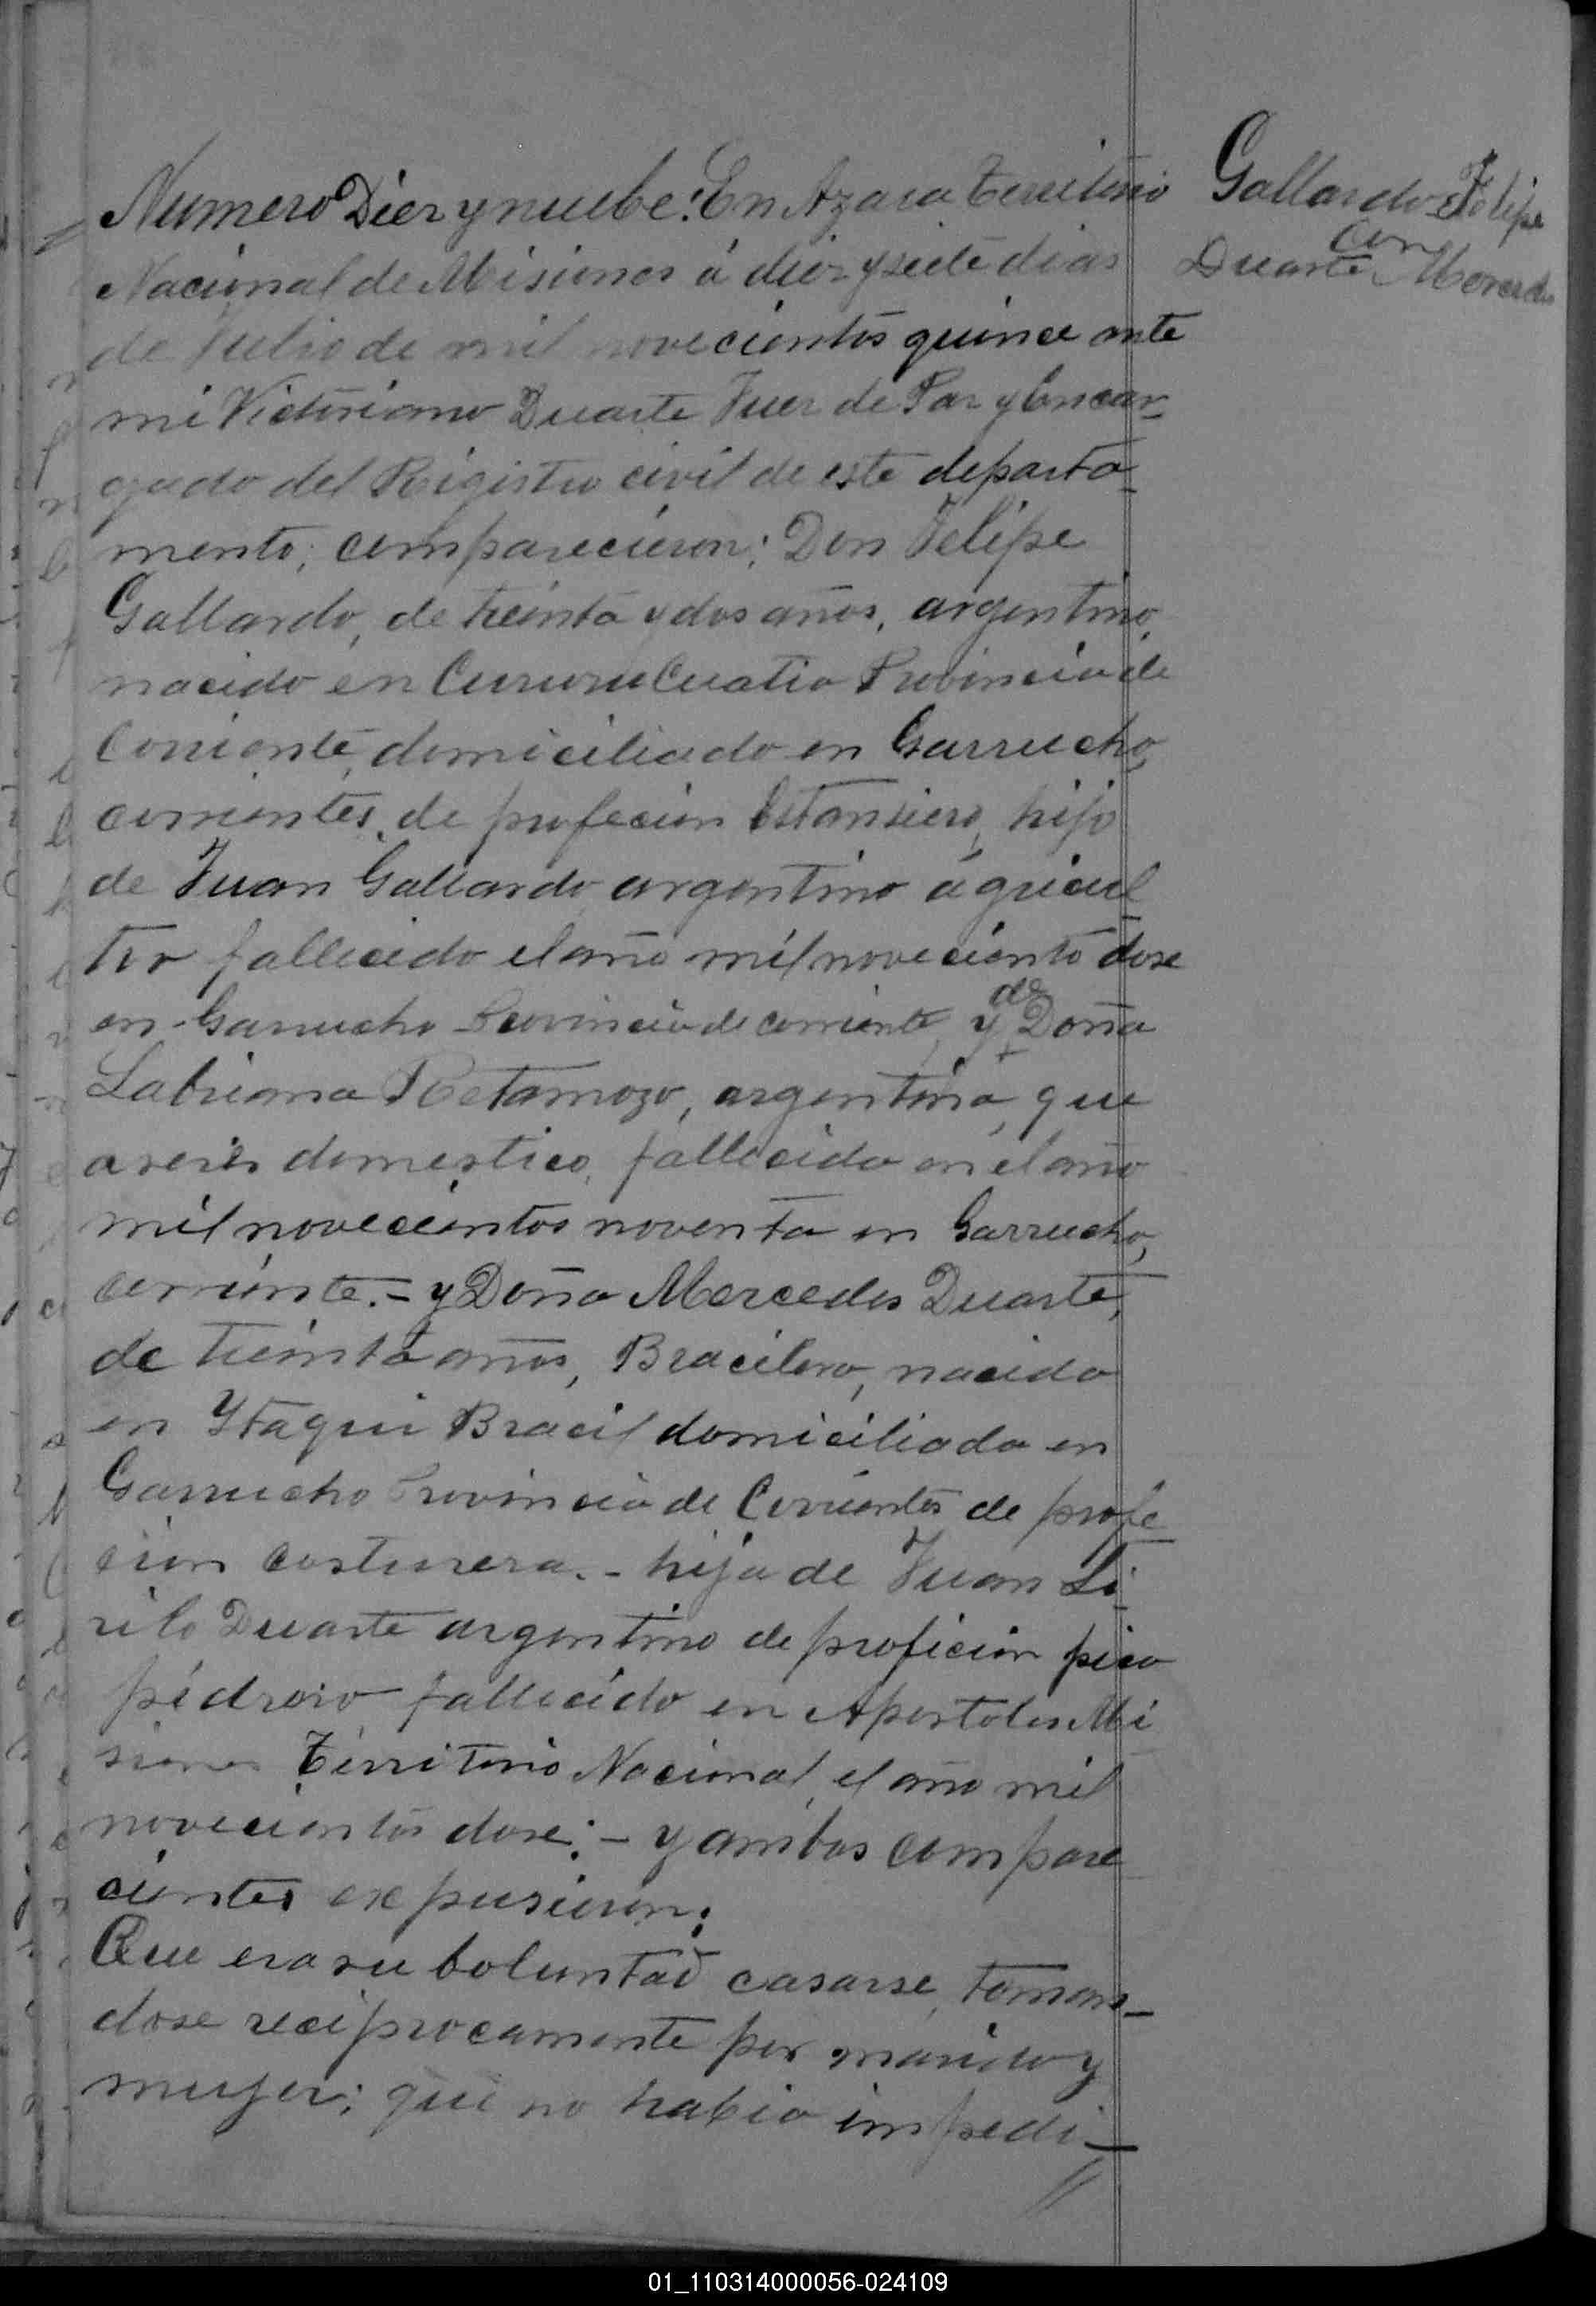 Gallardo Felipe
con
Duarte Mercedes
Numero Diez y nuebe: En Azara Territorio
Nacional de Misiones á diez y siete dias
de Julio de mil novecientos quince ante
mi Victoriano Duarte Juez de Paz y Encar-
gado del Registro civil de este departa-
mento, comparecieron; Don Felipe
Gallardo, de treinta y dos años, argentino,
nacido en Curuzu Cuatia Provincia de
Corriente, domiciliado en Garrucho,
corrientes, de profecion Estansiero, hijo
de Juan Gallardo argentino agricul-
tor fallecido el año mil noveciento dose
en Garrucho Provincia de corriente, y de Doña
Retamozo, argentina, que
aseres domestico, fallecida en el año
mil novecientos noventa en Garrucho,
corriente.- y Doña Mercedes Duarte,
de treinta años, Bracilera, nacida
en Ytaqui Bracil domiciliada en
Garrucho Provincia de Corrientes de profe-
cion costurera.- hija de Juan Si-
rilo Duarte argentino de proficion pica
pedrero fallecido en Apostoles Mi
siones Territorio Nacional, el año mil
novecientos dose:- y ambos compare-
cientes expusieron:
Que era su boluntad casarse, toman-
dose reciprocamente por marido y
mujer; que no habia impedi-
//
01_110314000056-024109